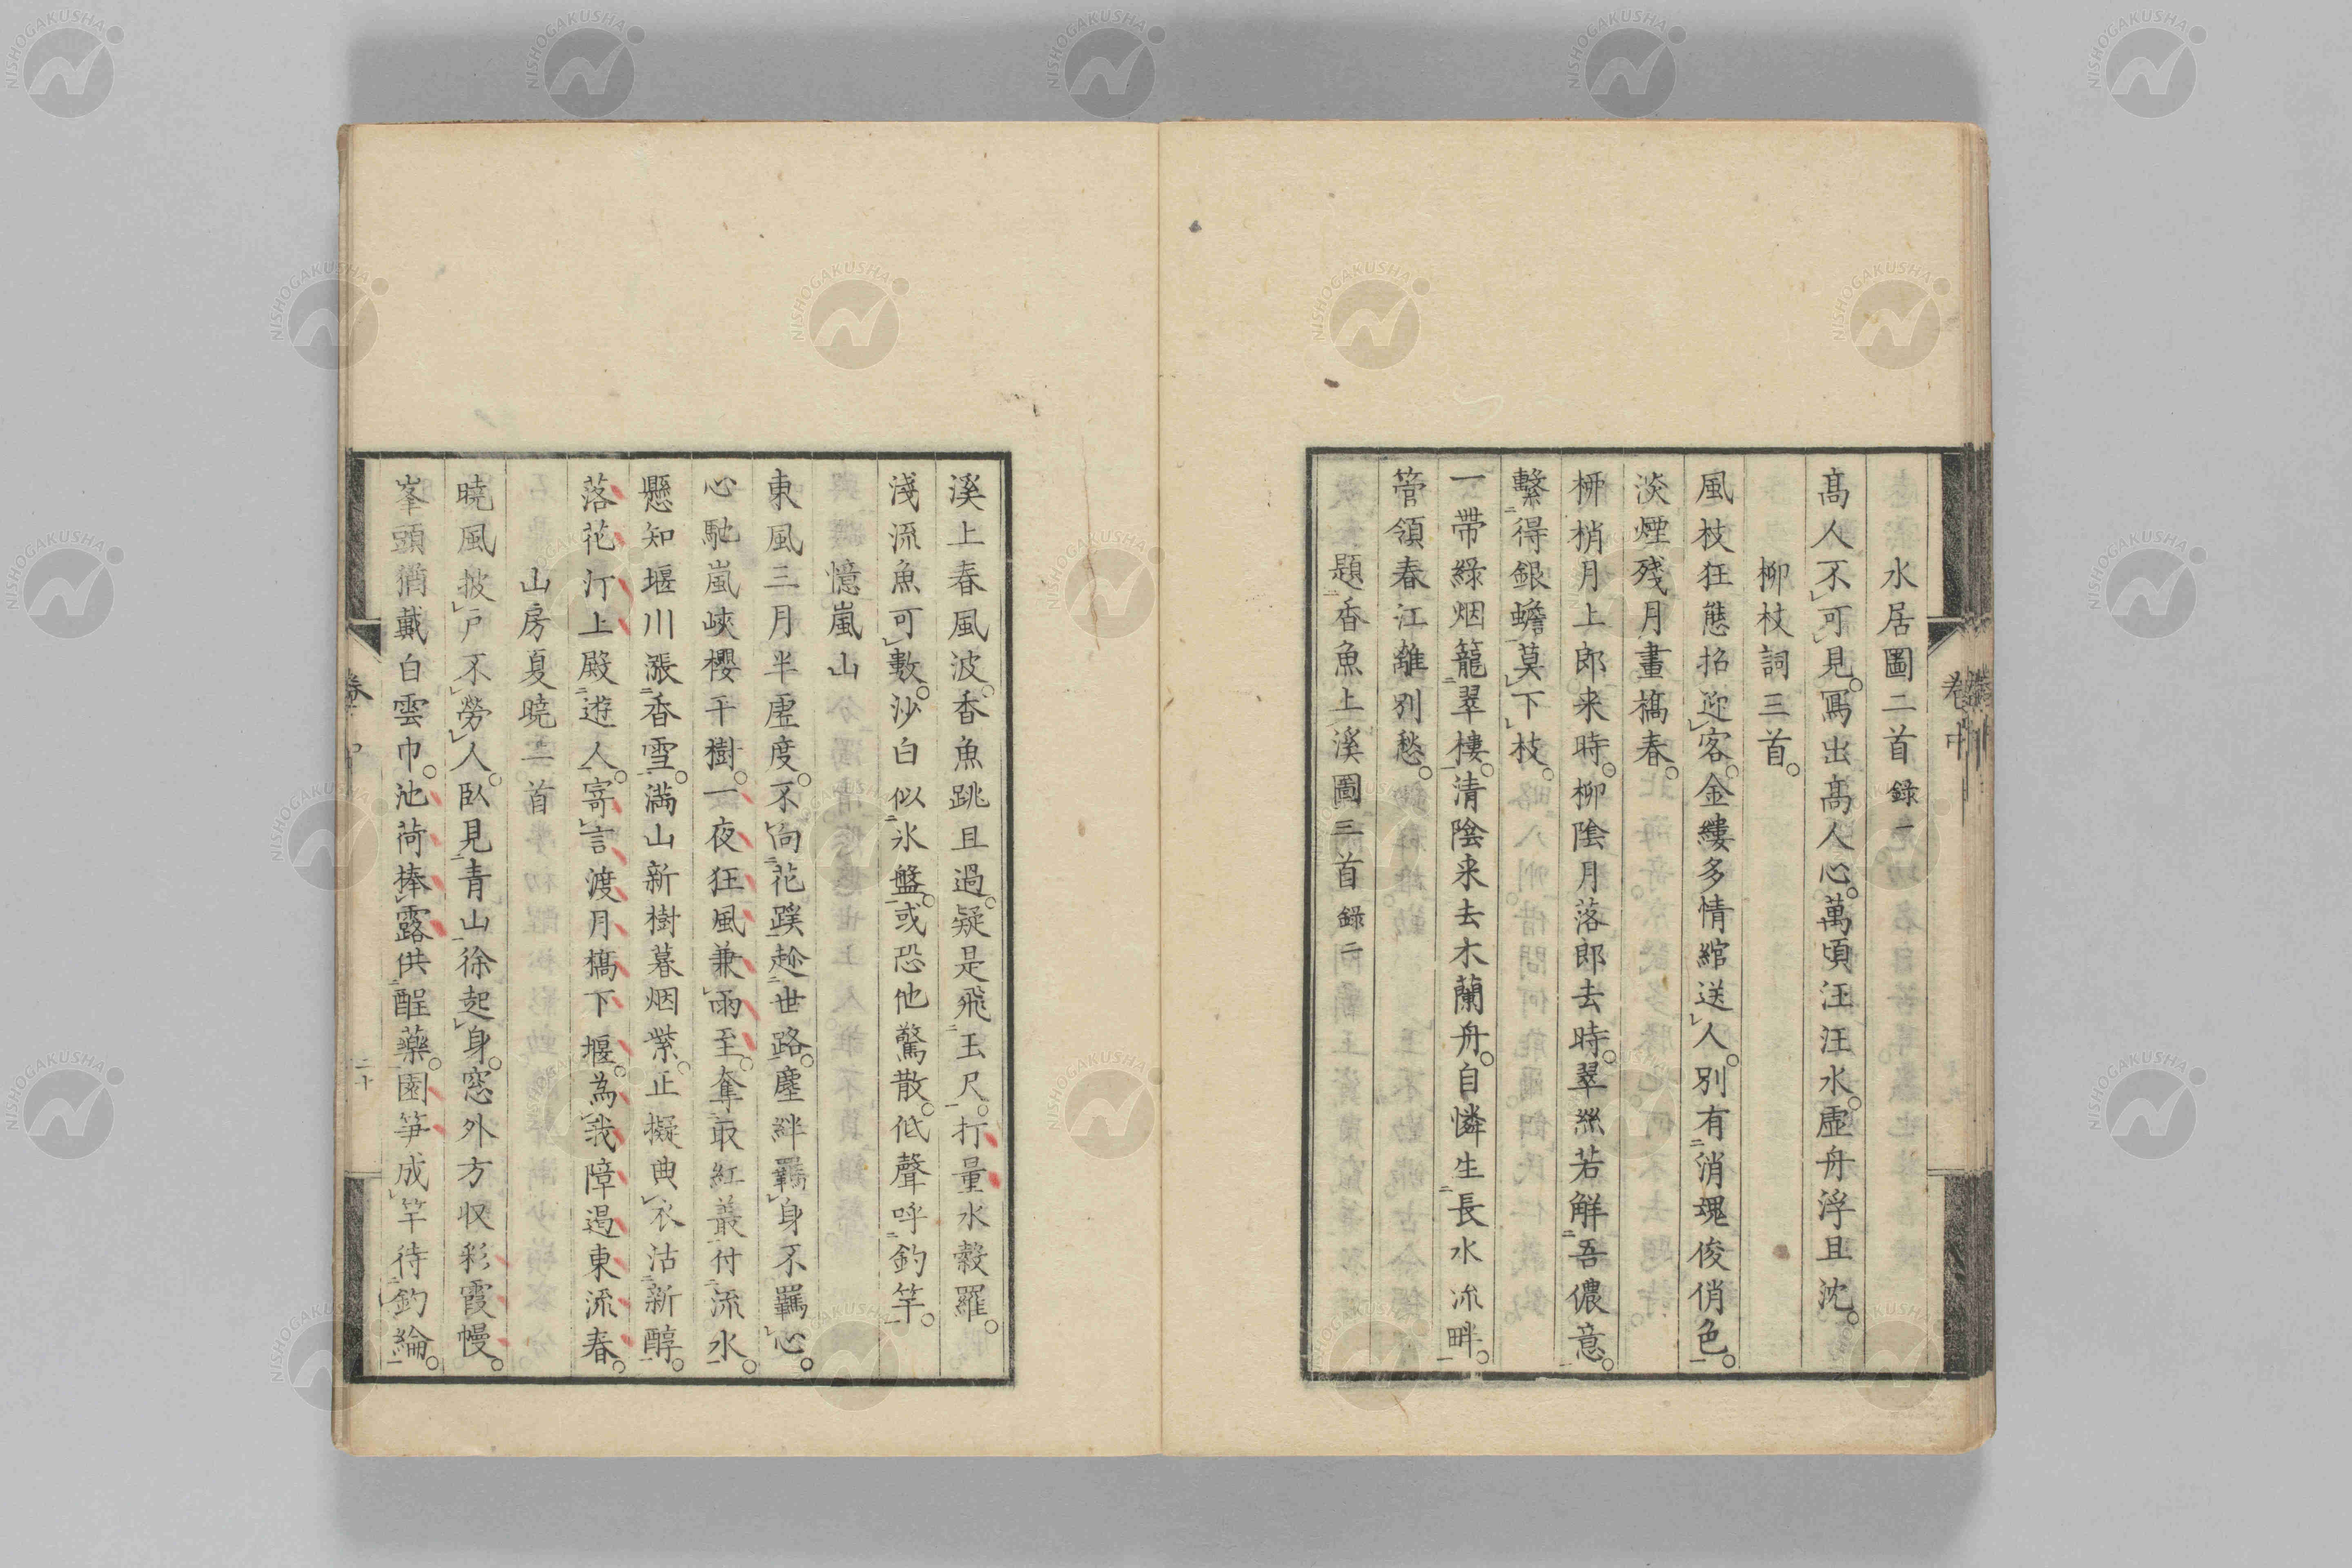 水居圖二首 錄一
高人不可見。寫出高人心。萬頃汪汪水。虛舟浮且沈。
柳枝詞三首。
風枝狂態招迎客。金縷多情綰送人。別有消魂俊俏色。
淡煙殘月畫橋春。
柳梢月上郎来時。柳陰月落郎去時。翠絲若解吾儂意。
繫得銀蟾莫下枝。
一帶綠烟籠翠樓。清陰来去木蘭舟。自憐生長水流畔。
管領春江離別愁。
題香魚上溪圖三首 錄二
溪上春風波。香魚跳且過。疑是飛玉尺。打量水縠羅。
淺流魚可數。沙白似氷盤。或恐他驚散。低聲呼釣竿。
憶嵐山
東風三月半虛度。不向花蹊趁世路。塵絆羈身不羈心。
心馳嵐峽櫻千樹。一夜狂風兼雨至。奪取紅叢付流水。
懸知堰川漲香雪。滿山新樹暮烟紫。正擬典衣沽新醇。
落花汀上殿遊人。寄言渡月橋下堰。為我障遏東流春。
山房夏曉二首
曉風披戶不勞人。臥見青山徐起身。窓外方収彩霞幔。
峯頭猶戴白雲巾。池荷捧露供酲藥。園笋成竿待釣綸。
卷中
二十
NISHOGAKUSHA